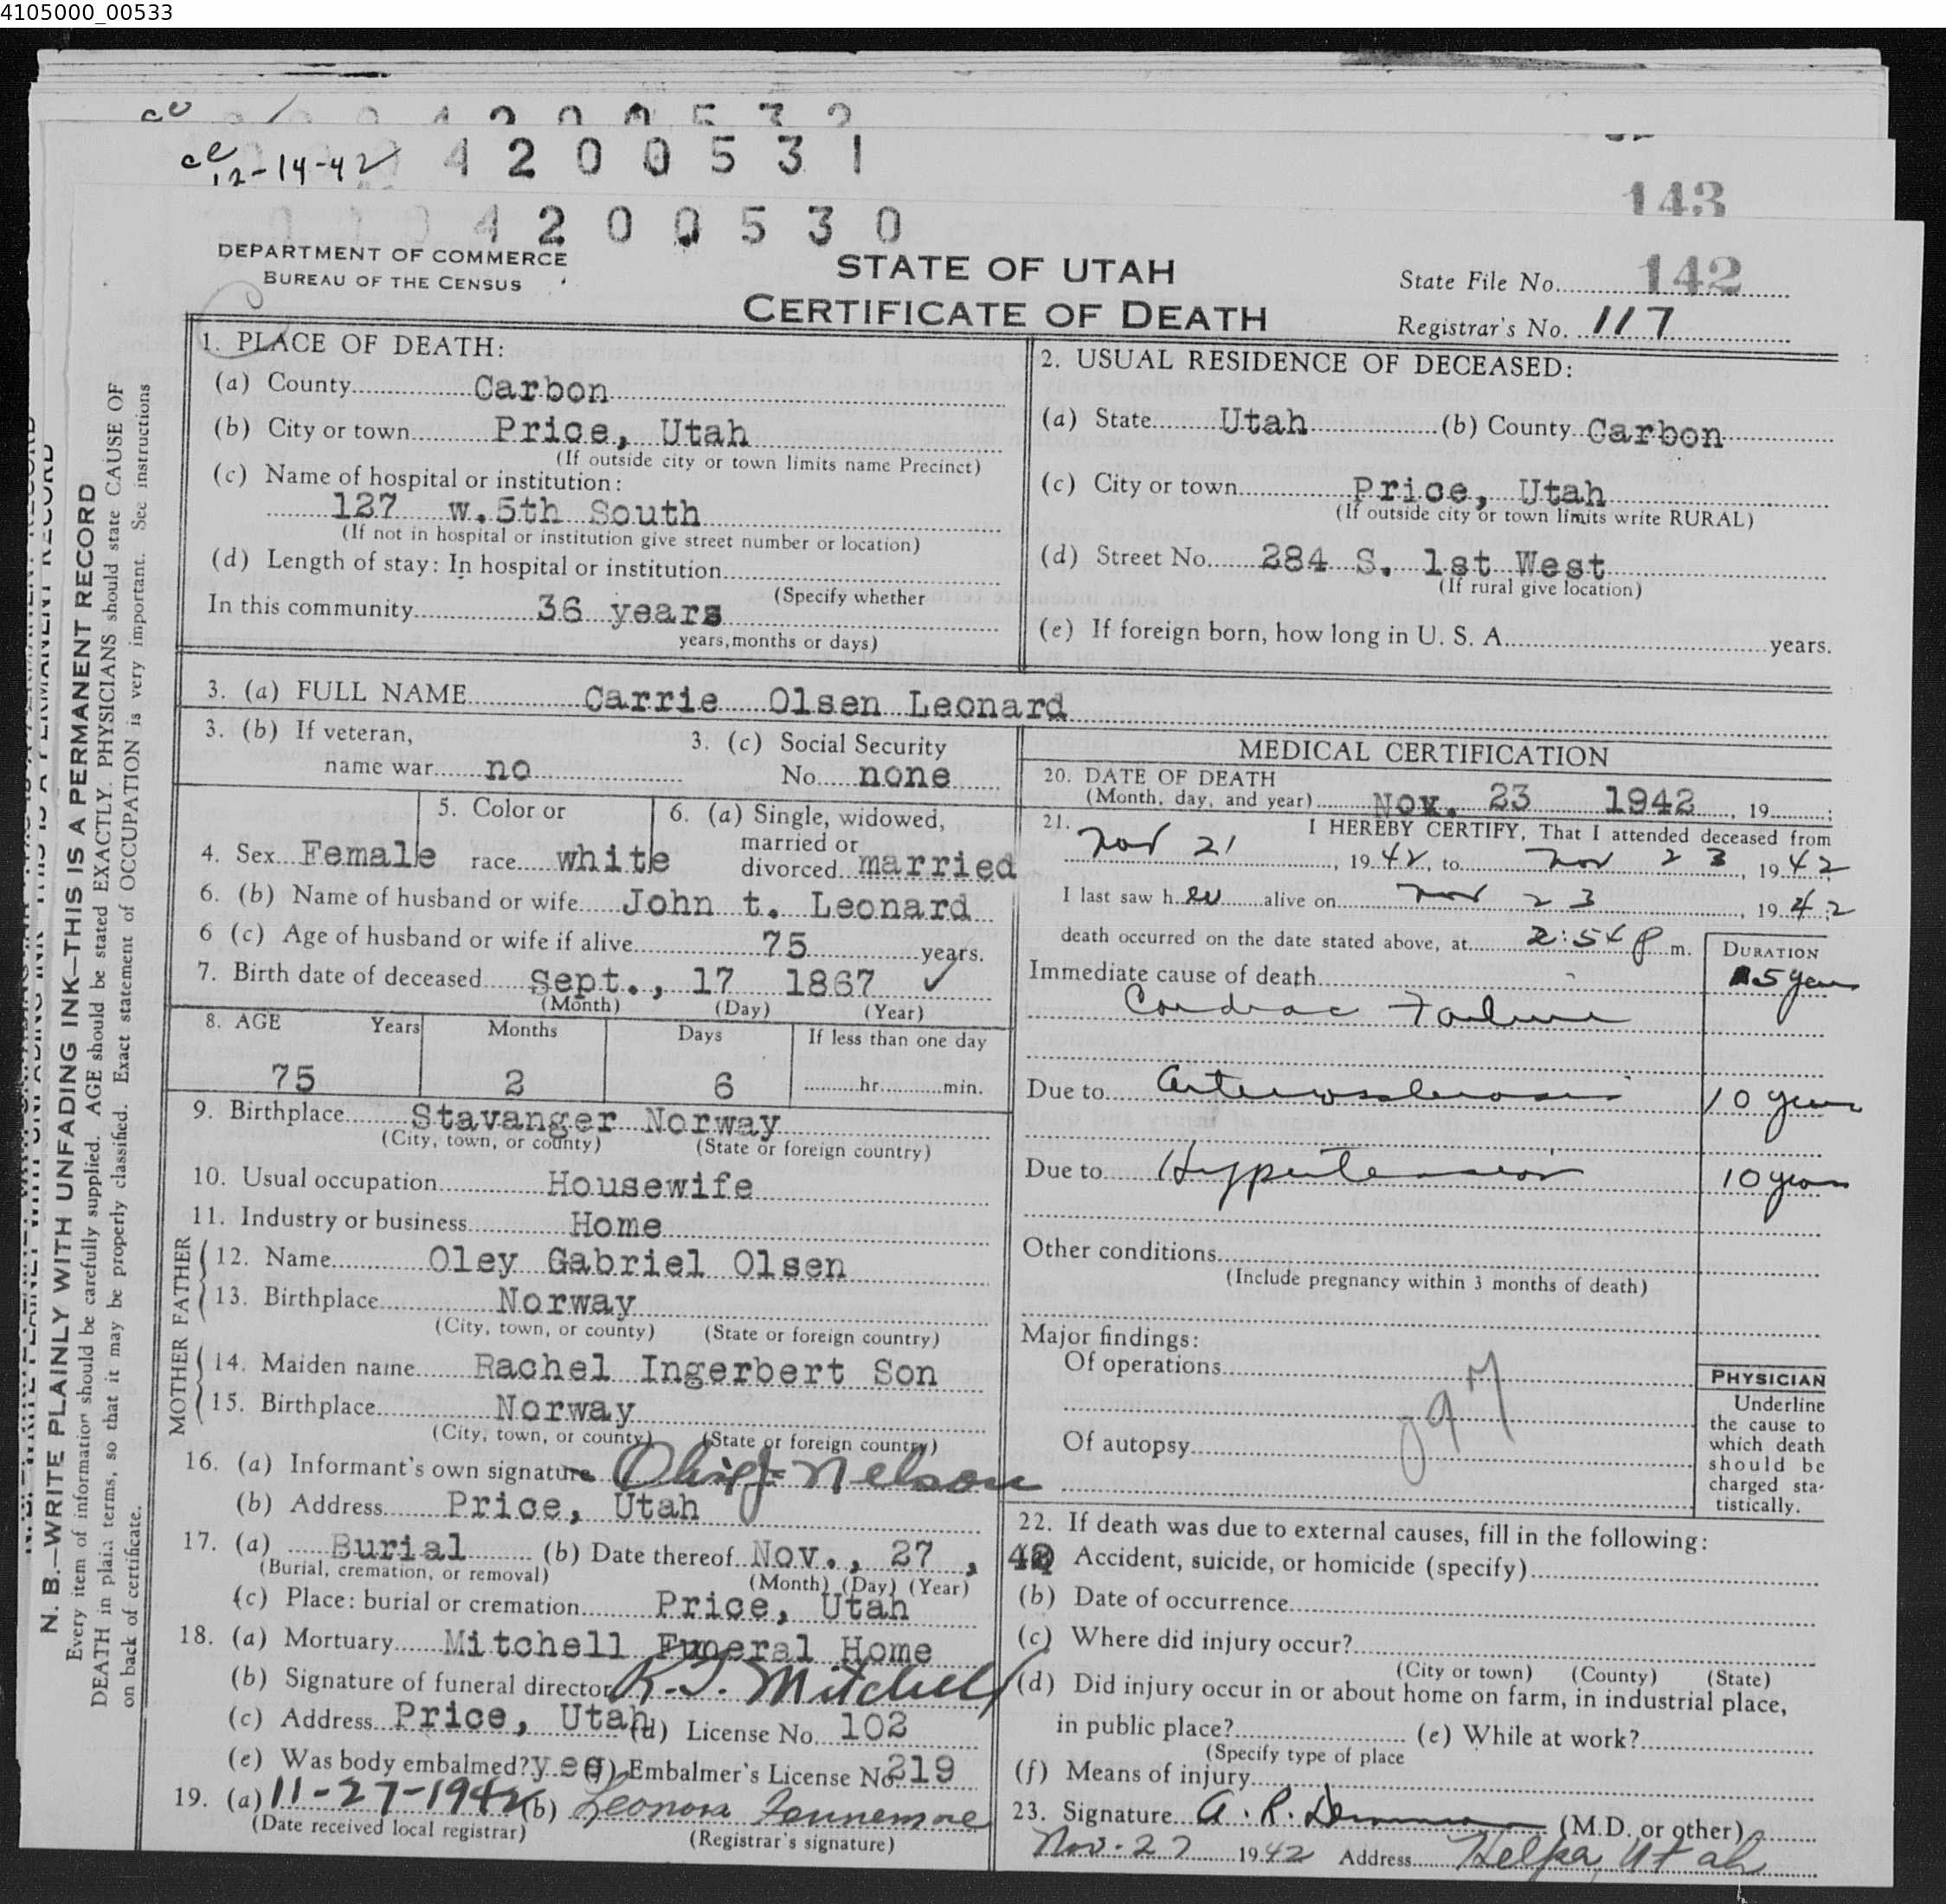 4105000_00533
4200532
ce 12-14-42 4200531
143
4200530
DEPARTMENT OF COMMERCE
BUREAU OF THE CENSUS
STATE OF UTAH
CERTIFICATE OF DEATH
State File No. 142
Registrar's No. 117
N. B.—WRITE PLAINLY WITH UNFADING INK—THIS IS A PERMANENT RECORD
Every item of information should be carefully supplied. AGE should be stated EXACTLY. PHYSICIANS should state CAUSE OF
DEATH in plain terms, so that it may be properly classified. Exact statement of OCCUPATION is very important. See instructions
on back of certificate.
1. PLACE OF DEATH:
(a) County Carbon
(b) City or town Price, Utah
(If outside city or town limits name Precinct)
(c) Name of hospital or institution:
127 w. 5th South
(If not in hospital or institution give street number or location)
(d) Length of stay: In hospital or institution
(Specify whether
In this community 36 years
years, months or days)
2. USUAL RESIDENCE OF DECEASED:
(a) State Utah (b) County Carbon
(c) City or town Price, Utah
(If outside city or town limits write RURAL)
(d) Street No. 284 S. 1st West
(If rural give location)
(e) If foreign born, how long in U. S. A. years.
3. (a) FULL NAME Carrie Olsen Leonard
3. (b) If veteran,
name war no
3. (c) Social Security
No. none
4. Sex Female
5. Color or
race white
6. (a) Single, widowed,
married or
divorced married
6. (b) Name of husband or wife John t. Leonard
6 (c) Age of husband or wife if alive 75 years.
7. Birth date of deceased Sept., 17 1867 ✓
(Month) (Day) (Year)
8. AGE Years Months Days If less than one day
75 2 6 hr. min.
9. Birthplace Stavanger Norway
(City, town, or county) (State or foreign country)
10. Usual occupation Housewife
11. Industry or business Home
FATHER
12. Name Oley Gabriel Olsen
13. Birthplace Norway
(City, town, or county) (State or foreign country)
MOTHER
14. Maiden name Rachel Ingerbert Son
15. Birthplace Norway
(City, town, or county) (State or foreign country)
16. (a) Informant's own signature Nelson
(b) Address Price, Utah
17. (a) Burial (b) Date thereof Nov., 27, 42
(Burial, cremation, or removal) (Month) (Day) (Year)
(c) Place: burial or cremation Price, Utah
18. (a) Mortuary Mitchell Funeral Home
(b) Signature of funeral director R. J. Mitchell
(c) Address Price, Utah (d) License No. 102
(e) Was body embalmed? yes (f) Embalmer's License No. 219
19. (a) 11-27-1942 (b) Leonora Fannemore
(Date received local registrar) (Registrar's signature)
MEDICAL CERTIFICATION
20. DATE OF DEATH
(Month, day, and year) Nov. 23 1942, 19 ;
21. I HEREBY CERTIFY, That I attended deceased from
Nov 21, 1942, to Nov 23, 1942
I last saw her alive on Nov 23, 1942;
death occurred on the date stated above, at 2:54 p m.
DURATION
Immediate cause of death 5 years
Cardiac Failure
Due to Arteriosclerosis 10 years
Due to Hypertension 10 years
Other conditions
(Include pregnancy within 3 months of death)
Major findings:
Of operations
Of autopsy
97
PHYSICIAN
Underline
the cause to
which death
should be
charged sta-
tistically.
22. If death was due to external causes, fill in the following:
Accident, suicide, or homicide (specify)
(b) Date of occurrence
(c) Where did injury occur?
(City or town) (County) (State)
(d) Did injury occur in or about home on farm, in industrial place,
in public place? (e) While at work?
(Specify type of place
(f) Means of injury
23. Signature A. R. Demman (M.D. or other)
Nov. 27 1942 Address Helper, Utah